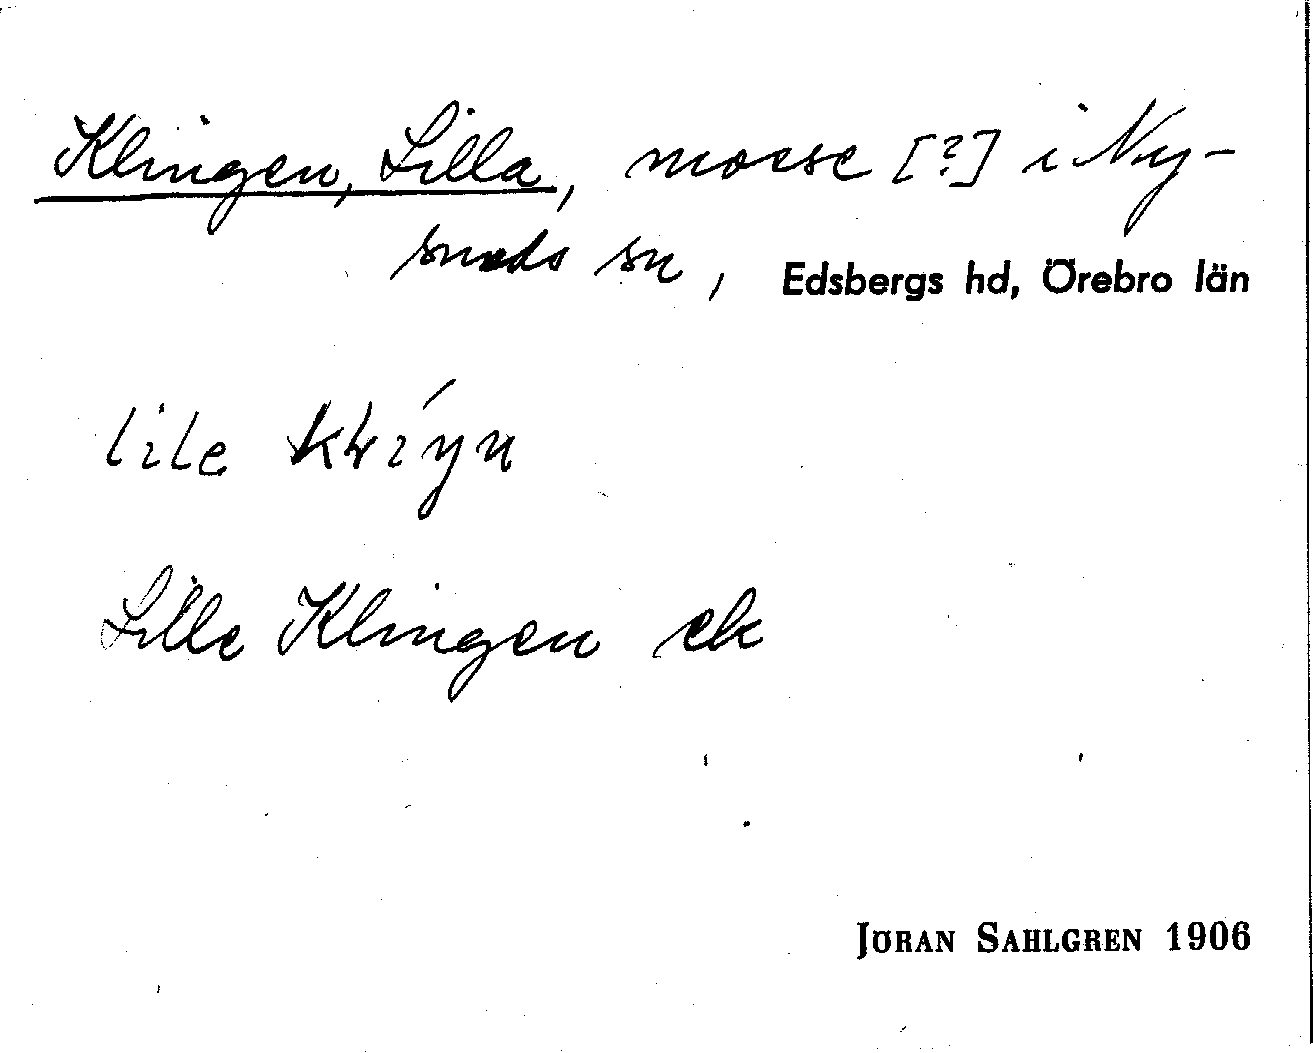 Klingen, Lilla, mosse [?] i Ny-
sunds sn, Edsbergs hd, Örebro län
Lille Klingen ek
JÖRAN SAHLGREN 1906